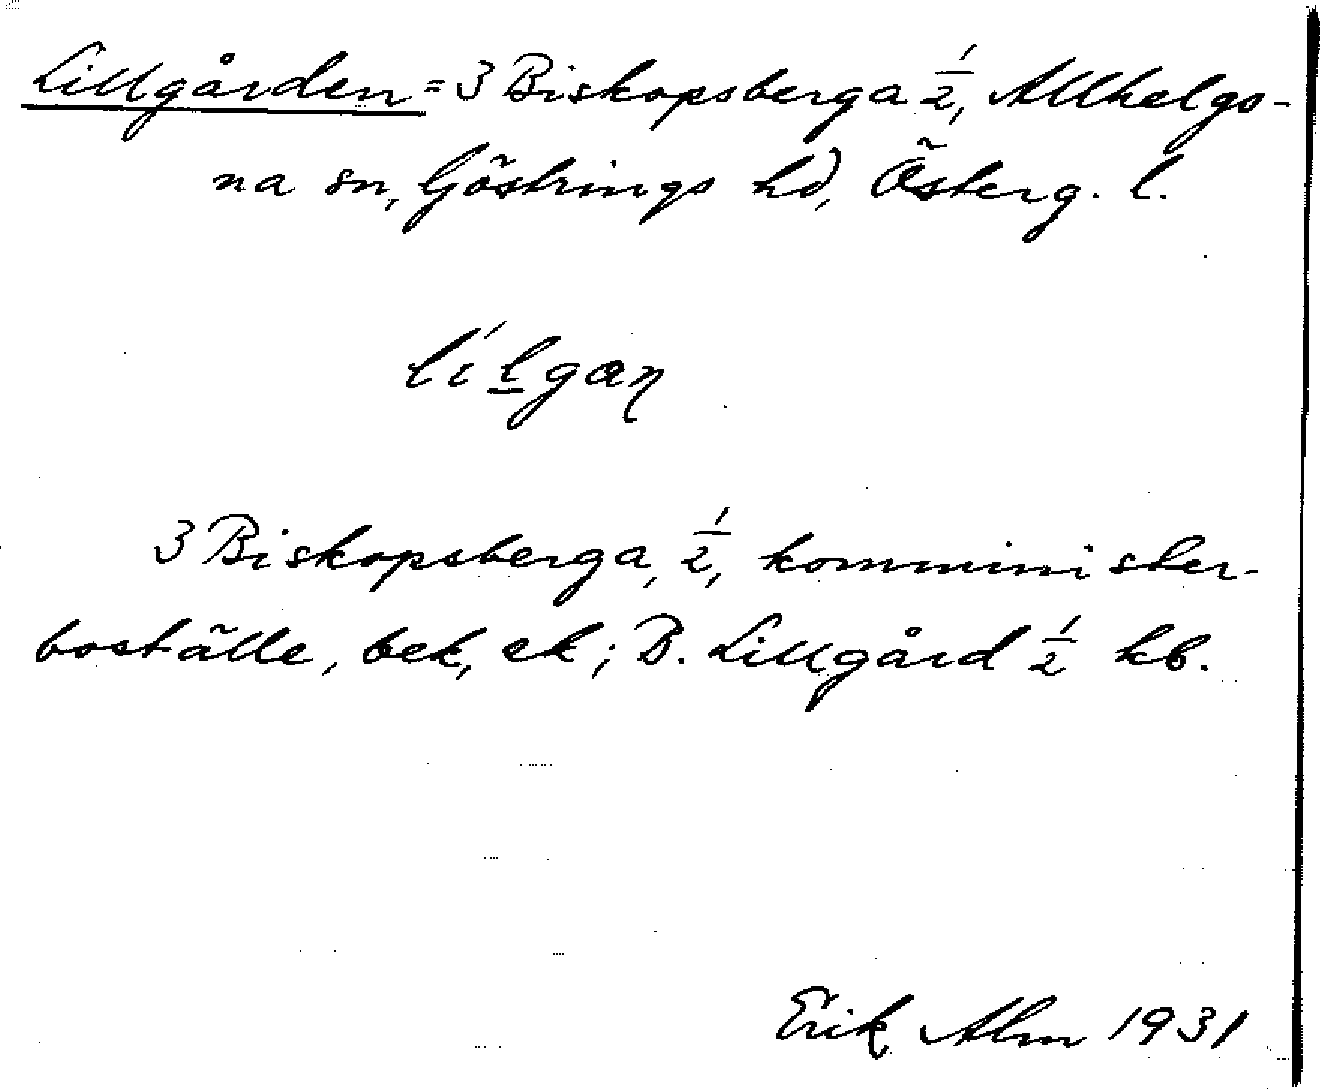 Lillgården = 3 Biskopsberga ½, Allhelgo-
na sn, Göstrings hd, Österg. l.
lílgaɳ
3 Biskopsberga, ½, komminister-
boställe, bek, ek; B. Lillgård ½ kb.
Erik Alm 1931